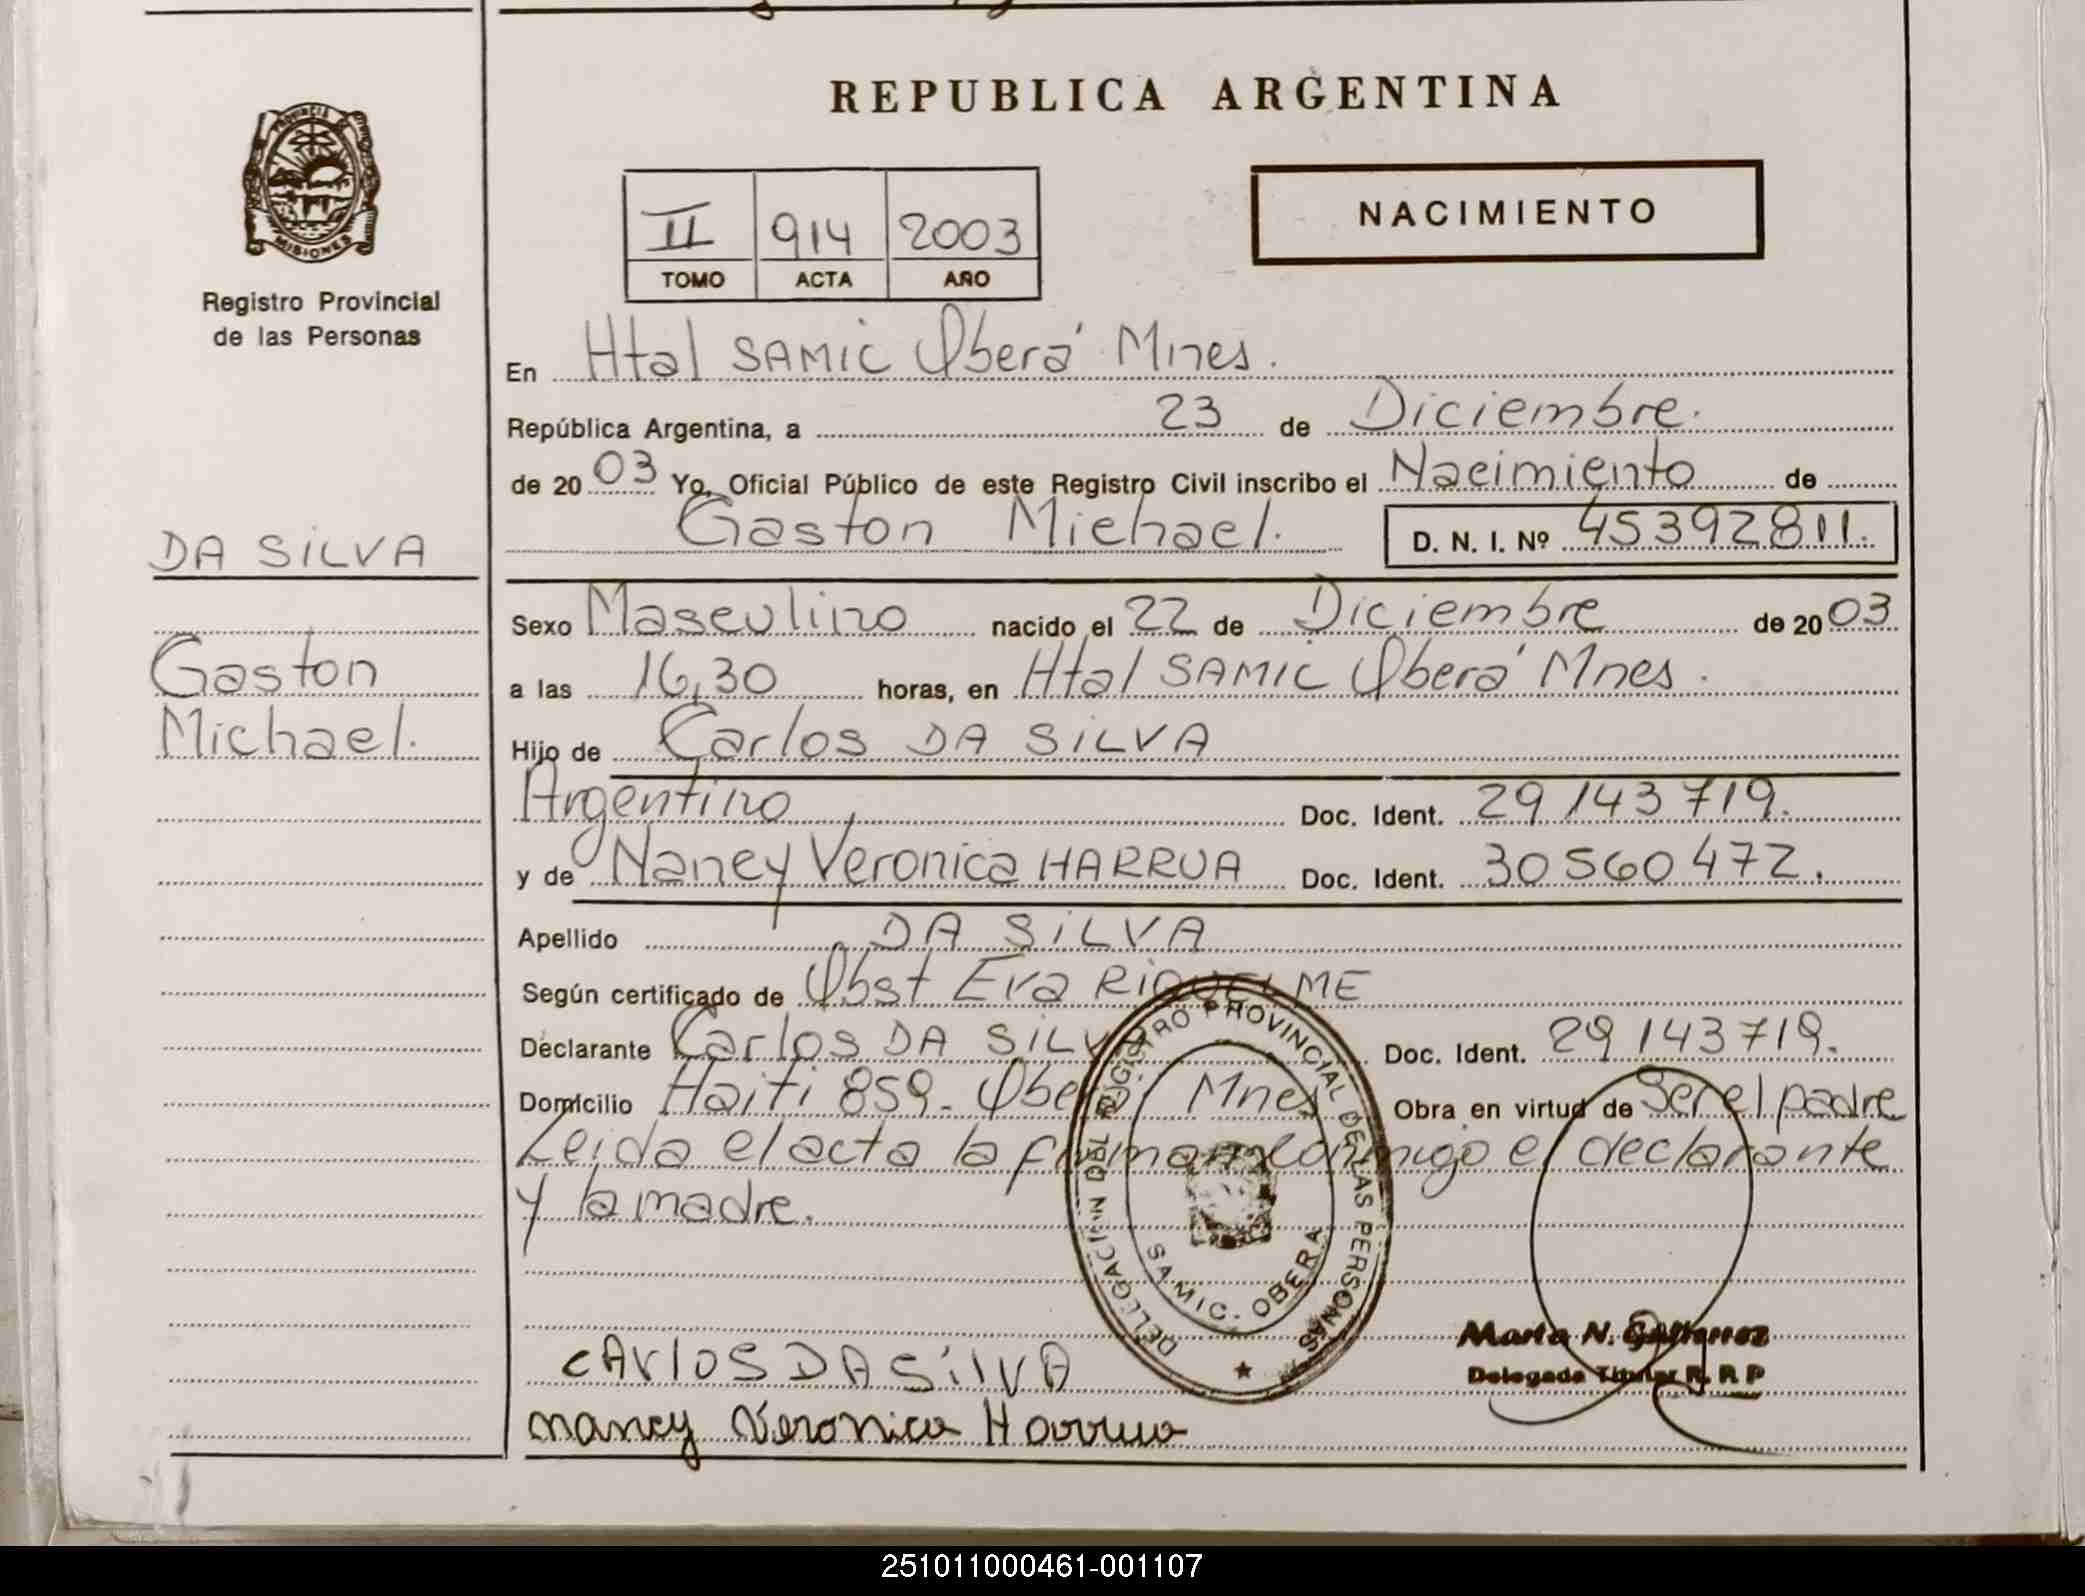 REPUBLICA ARGENTINA
PROVINCIA DE
MISIONES
Registro Provincial
de las Personas
II 914 2003
TOMO ACTA AÑO
NACIMIENTO
En Htal SAMIC Oberá Mnes.
República Argentina, a 23 de Diciembre.
de 20 03 Yo, Oficial Público de este Registro Civil inscribo el Nacimiento de
Gaston Michael. D. N. I. Nº 45392811.
DA SILVA
Gaston
Michael.
Sexo Masculino nacido el 22 de Diciembre de 20 03
a las 16,30 horas, en Htal SAMIC Oberá Mnes.
Hijo de Carlos DA SILVA
Argentino Doc. Ident. 29143719.
y de Nancy Veronica HARRUA Doc. Ident. 30560472.
Apellido DA SILVA
Según certificado de Obst Eva RIQUELME
Declarante Carlos DA SILVA Doc. Ident. 29143719.
Domicilio Haiti 859. Oberá Mnes Obra en virtud de Ser el padre
Leida el acta la firman conmigo el declarante
y la madre.
REGISTRO PROVINCIAL DE LAS PERSONAS
DELEGACION
SAMIC. OBERA
Marta N. Gutierrez
Delegada Titular R. P. P
CARLOS DA SILVA
Nancy Veronica Harrua
251011000461-001107